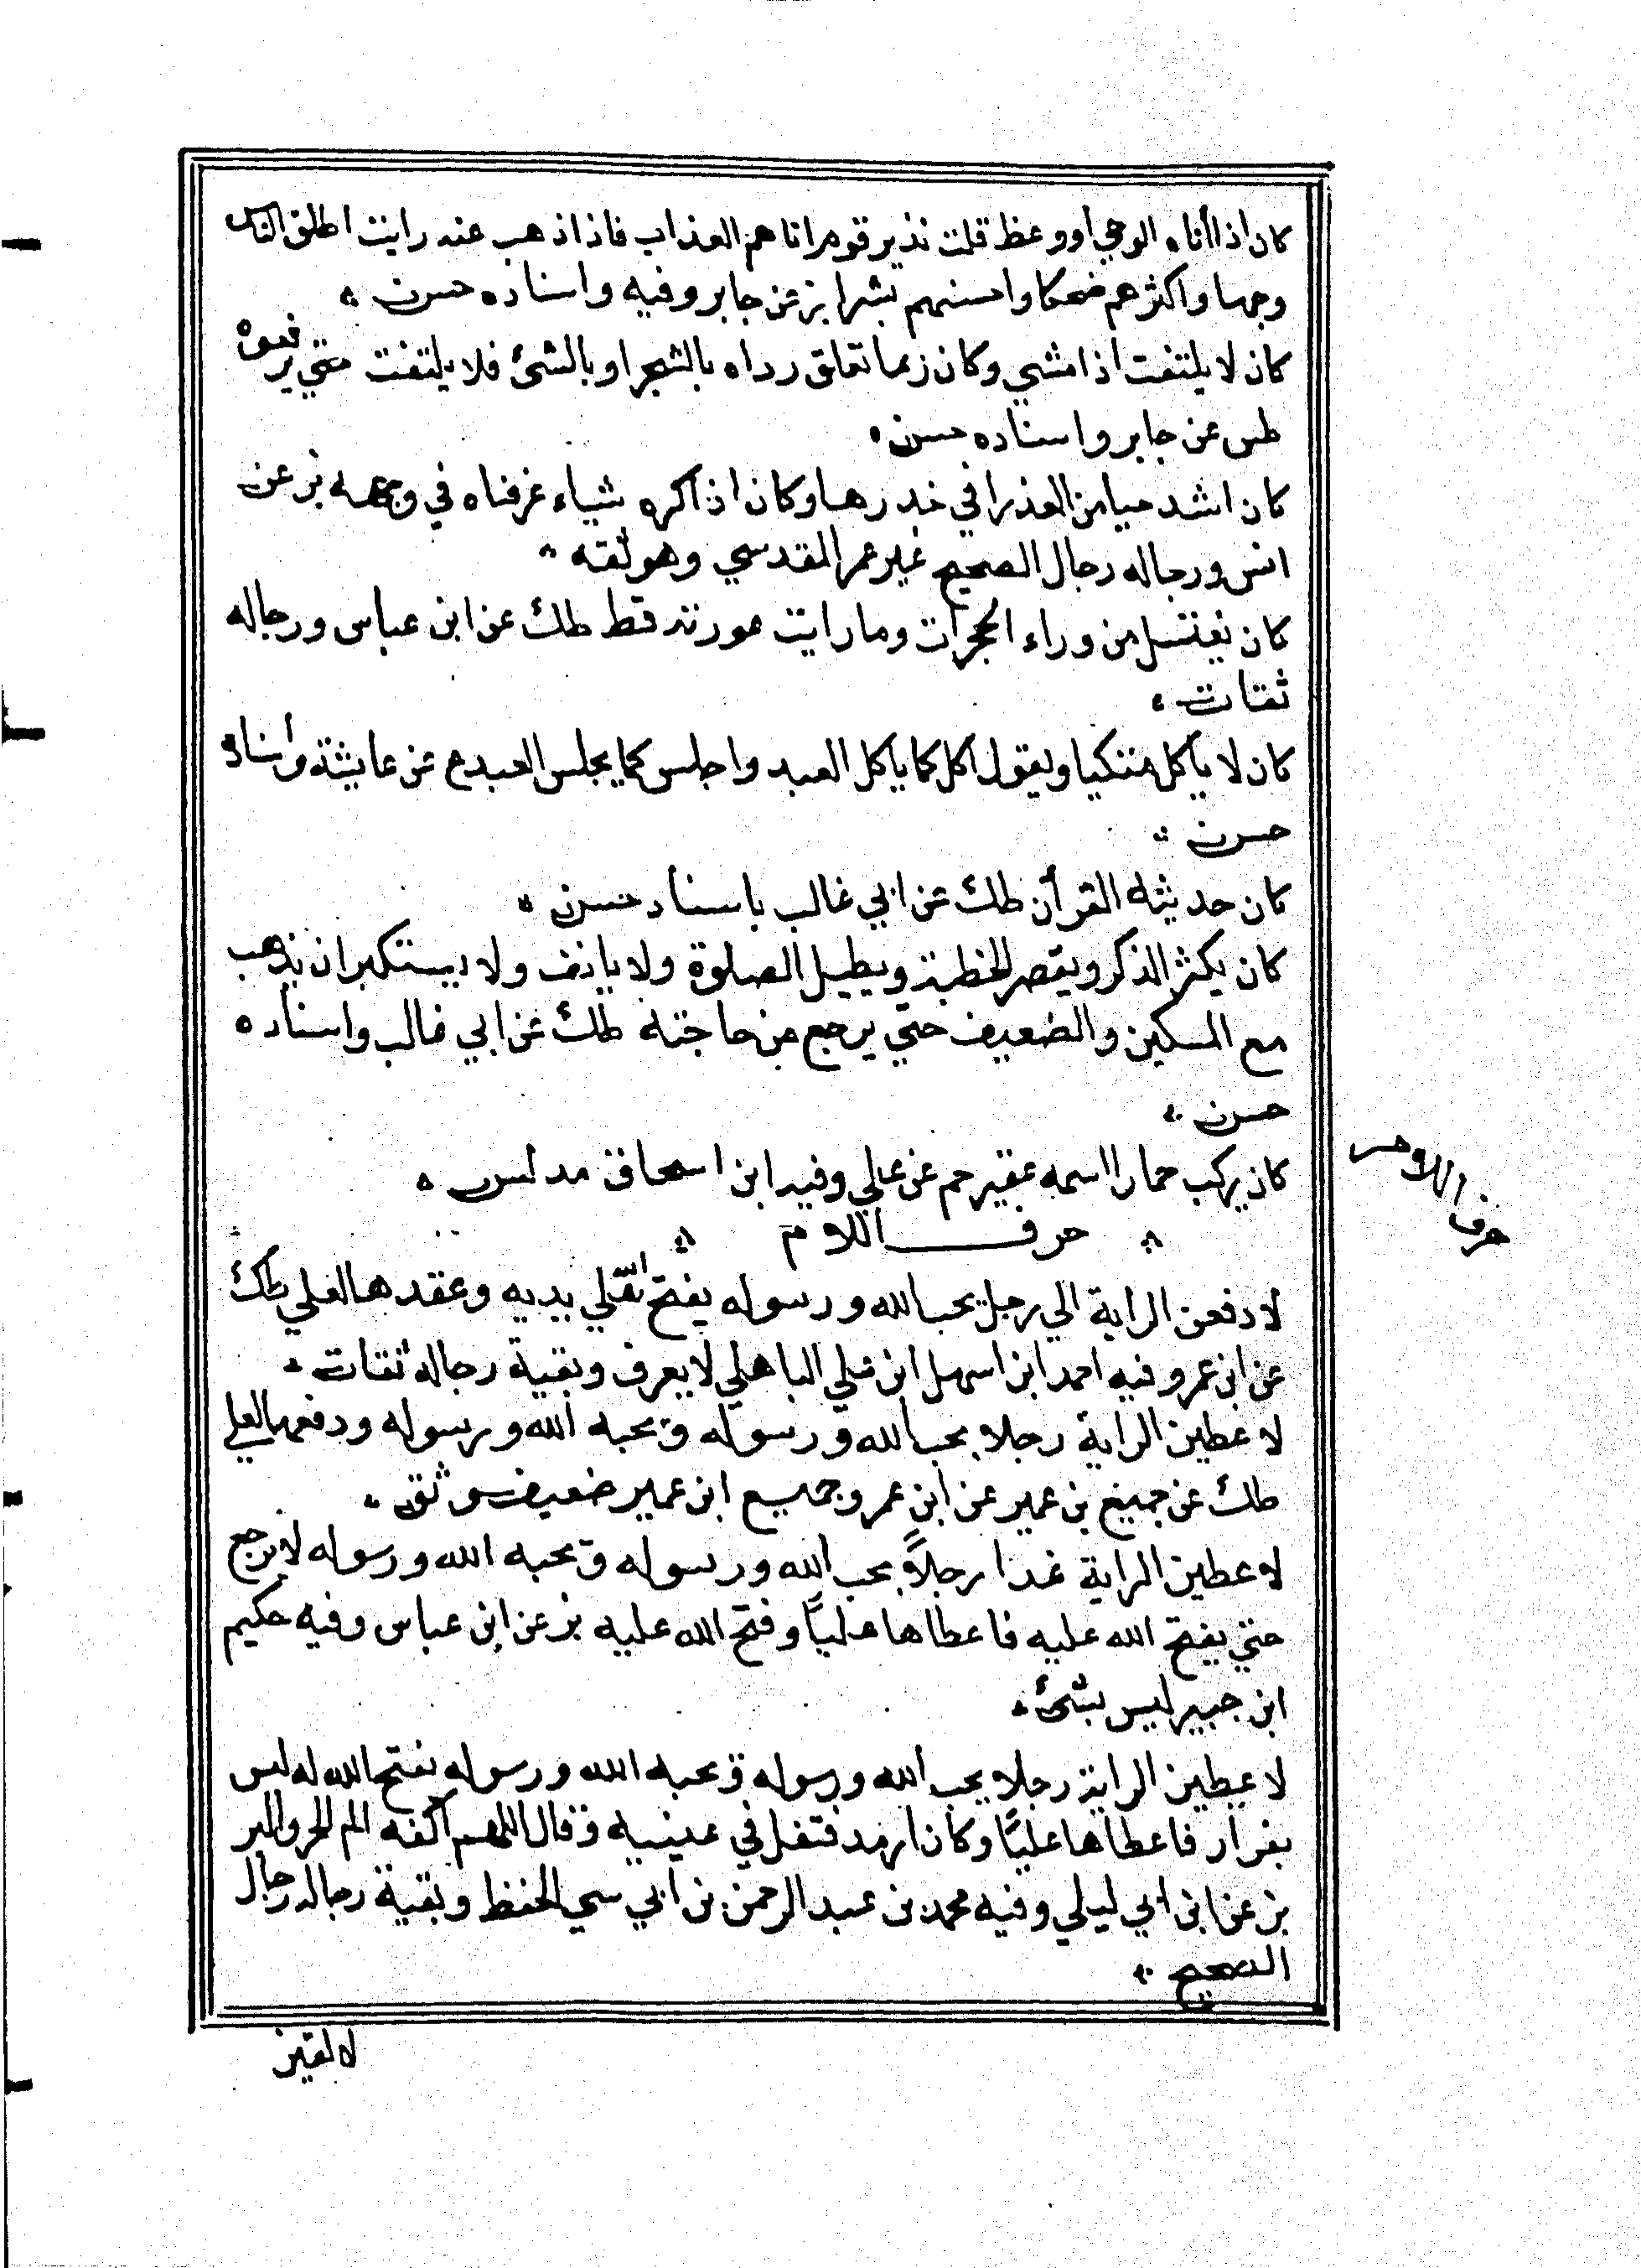 كان اذا أتاه الوحي أو وعظ قلت نذير قوم اتاهم العذاب فاذا ذهب عنه رايت اطلق الناس
وجها واكثرهم ضحكا واحسنهم بشرا بز عن جابر وفيه واسناده حسن
كان لا يلتفت اذا مشي وكان ربما تعلق رداه بالشجر او بالشئ فلا يلتفت حتي يرفعوه
طس عن جابر واسناده حسن
كان اشد حيا من العذرا في خدرها وكان اذا كره شياء عرفناه في وجهه بز عن
انس ورجاله رجال الصحيح غير عمر المقدسي وهو ثقه
كان يغتسل من وراء الحجرات وما رايت عورته قط طك عن ابن عباس ورجاله
ثقات
كان لا يأكل متكيا ويقول اكل كما ياكل العبد واجلس كما يجلس العبد ع عن عايشة واسناده
حسن
كان حديثه القرأن طك عن ابي غالب باسناد حسن
كان يكثر الذكر ويقصر الخطبة ويطيل الصلوة ولا يانف ولا يستكبر ان يذهب
مع المسكين والضعيف حتي يرجع من حاجته طك عن ابي غالب واسناده
حسن
كان يركب حمارا اسمه عفير حم عن علي وفيه ابن اسحاق مدلس
حرف اللام
حرف اللام
لادفعن الراية الي رجل يحب الله ورسوله يفتح الله علي يديه وعقدها لعلي طك
عن ابن عمر وفيه احمد ابن اسهل ابن علي الباهلي لا يعرف وبقية رجاله ثقات
لاعطين الراية رجلا يحب الله ورسوله ويحبه الله ورسوله ودفعها لعلي
طك عن جميع بن عمير عن ابن عمر وجميع ابن عمير ضعيف وثق
لاعطين الراية غدا رجلاً يحب الله ورسوله ويحبه الله ورسوله لا يرجع
حتي يفتح الله عليه فاعطاها علياً وفتح الله عليه بز عن ابن عباس وفيه حكيم
ابن جبير ليس بشئ
لاعطين الراية رجلا يحب الله ورسوله ويحبه الله ورسوله يفتح الله له ليس
بفرار فاعطاها علياً وكان ارمد فتفل في عينيه وقال اللهم اكفه الم الحر والبر
بز عن ابن ابي ليلي وفيه محمد بن عبد الرحمن بن ابي سي الحفظ وبقية رجاله رجال
الصحيح